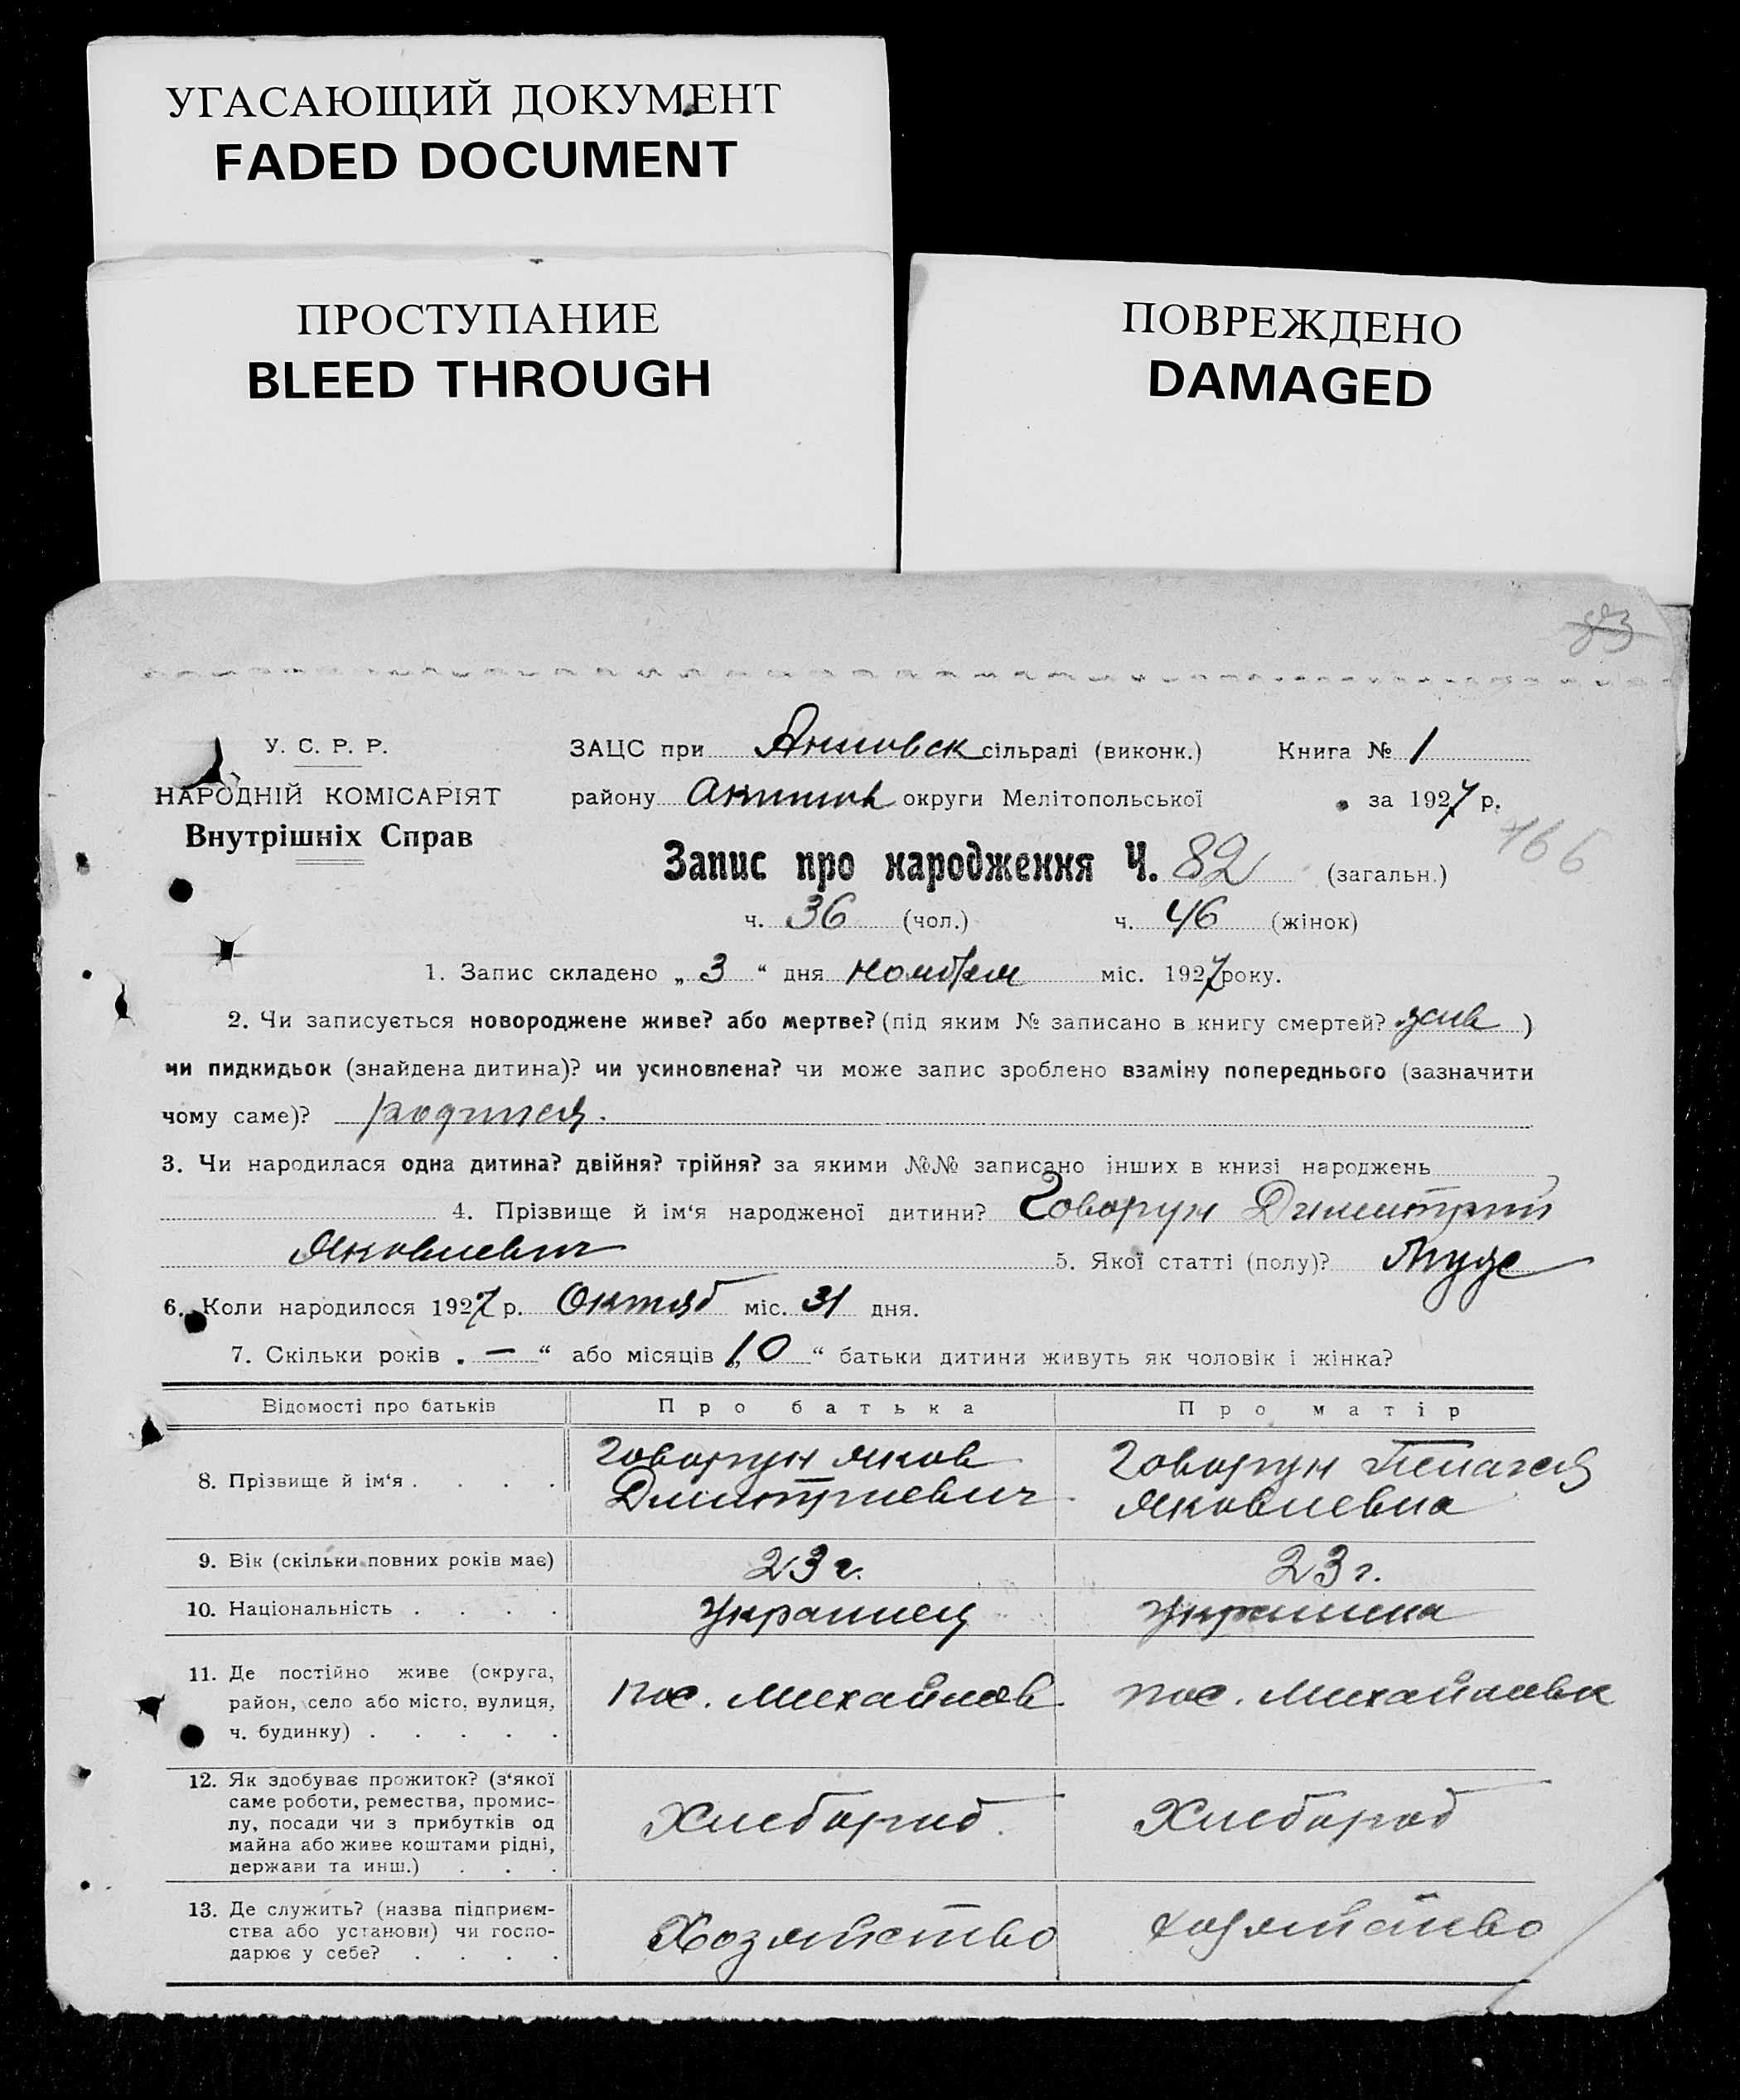 УГАСАЮЩИЙ ДОКУМЕНТ
FADED DOCUMENT
ПРОСТУПАНИЕ
BLEED THROUGH
ПОВРЕЖДЕНО
DAMAGED
83
У. С. Р. Р.
НАРОДНІЙ КОМІСАРІЯТ
Внутрішніх Справ
ЗАЦС при сільраді (виконк.) Книга № 1
району Акимов округи Мелітопольської за 1927 р.
166
Запис про народження Ч. 82 (загальн.)
ч. 36 (чол.) ч. 46 (жінок)
1. Запис складено „ 3 “ дня ноября міс. 1927 року.
2. Чи записується новороджене живе? або мертве? (під яким № записано в книгу смертей? жив )
чи пидкидьок (знайдена дитина)? чи усиновлена? чи може запис зроблено взаміну попереднього (зазначити
чому саме)? родился.
3. Чи народилася одна дитина? двійня? трійня? за якими №№ записано інших в книзі народжень
4. Прізвище й ім‘я народженої дитини? Говорун Димитрий
Яковлевич 5. Якої статті (полу)? Муж
6. Коли народилося 1927 р. Октяб міс. 31 дня.
7. Скільки років „ — “ або місяців „ 10 “ батьки дитини живуть як чоловік і жінка?
Відомості про батьків Про батька Про матір
8. Прізвище й ім‘я . . . . Говорун Яков Дмитриевич Говорун Пелагея Яковлевна
9. Вік (скільки повних років має) 23 г. 23 г.
10. Національність . . . . Украинец Украинка
11. Де постійно живе (округа,
район, село або місто, вулиця,
ч. будинку) . . . . . пос. Михайлов пос. Михайловк
12. Як здобуває прожиток? (з‘якої
саме роботи, ремества, промис-
лу, посади чи з прибутків од
майна або живе коштами рідні,
держави та инш.) . . . Хлебороб. Хлебороб
13. Де служить? (назва підприєм-
ства або установи) чи госпо-
дарює у себе? . . . . Хозяйство хозяйство